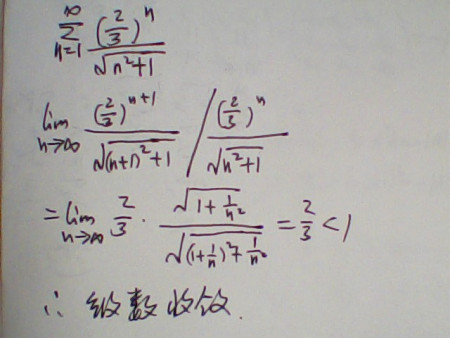 ∑_{n=1}^{∞} (2/3)^n / √(n²+1)
lim_{n→∞} (2/3)^{n+1} / √((n+1)²+1) / (2/3)^n / √(n²+1)
= lim_{n→∞} 2/3 · √(1+1/n²) / √((1+1/n)²+1/n²) = 2/3 < 1
∴ 级数收敛.